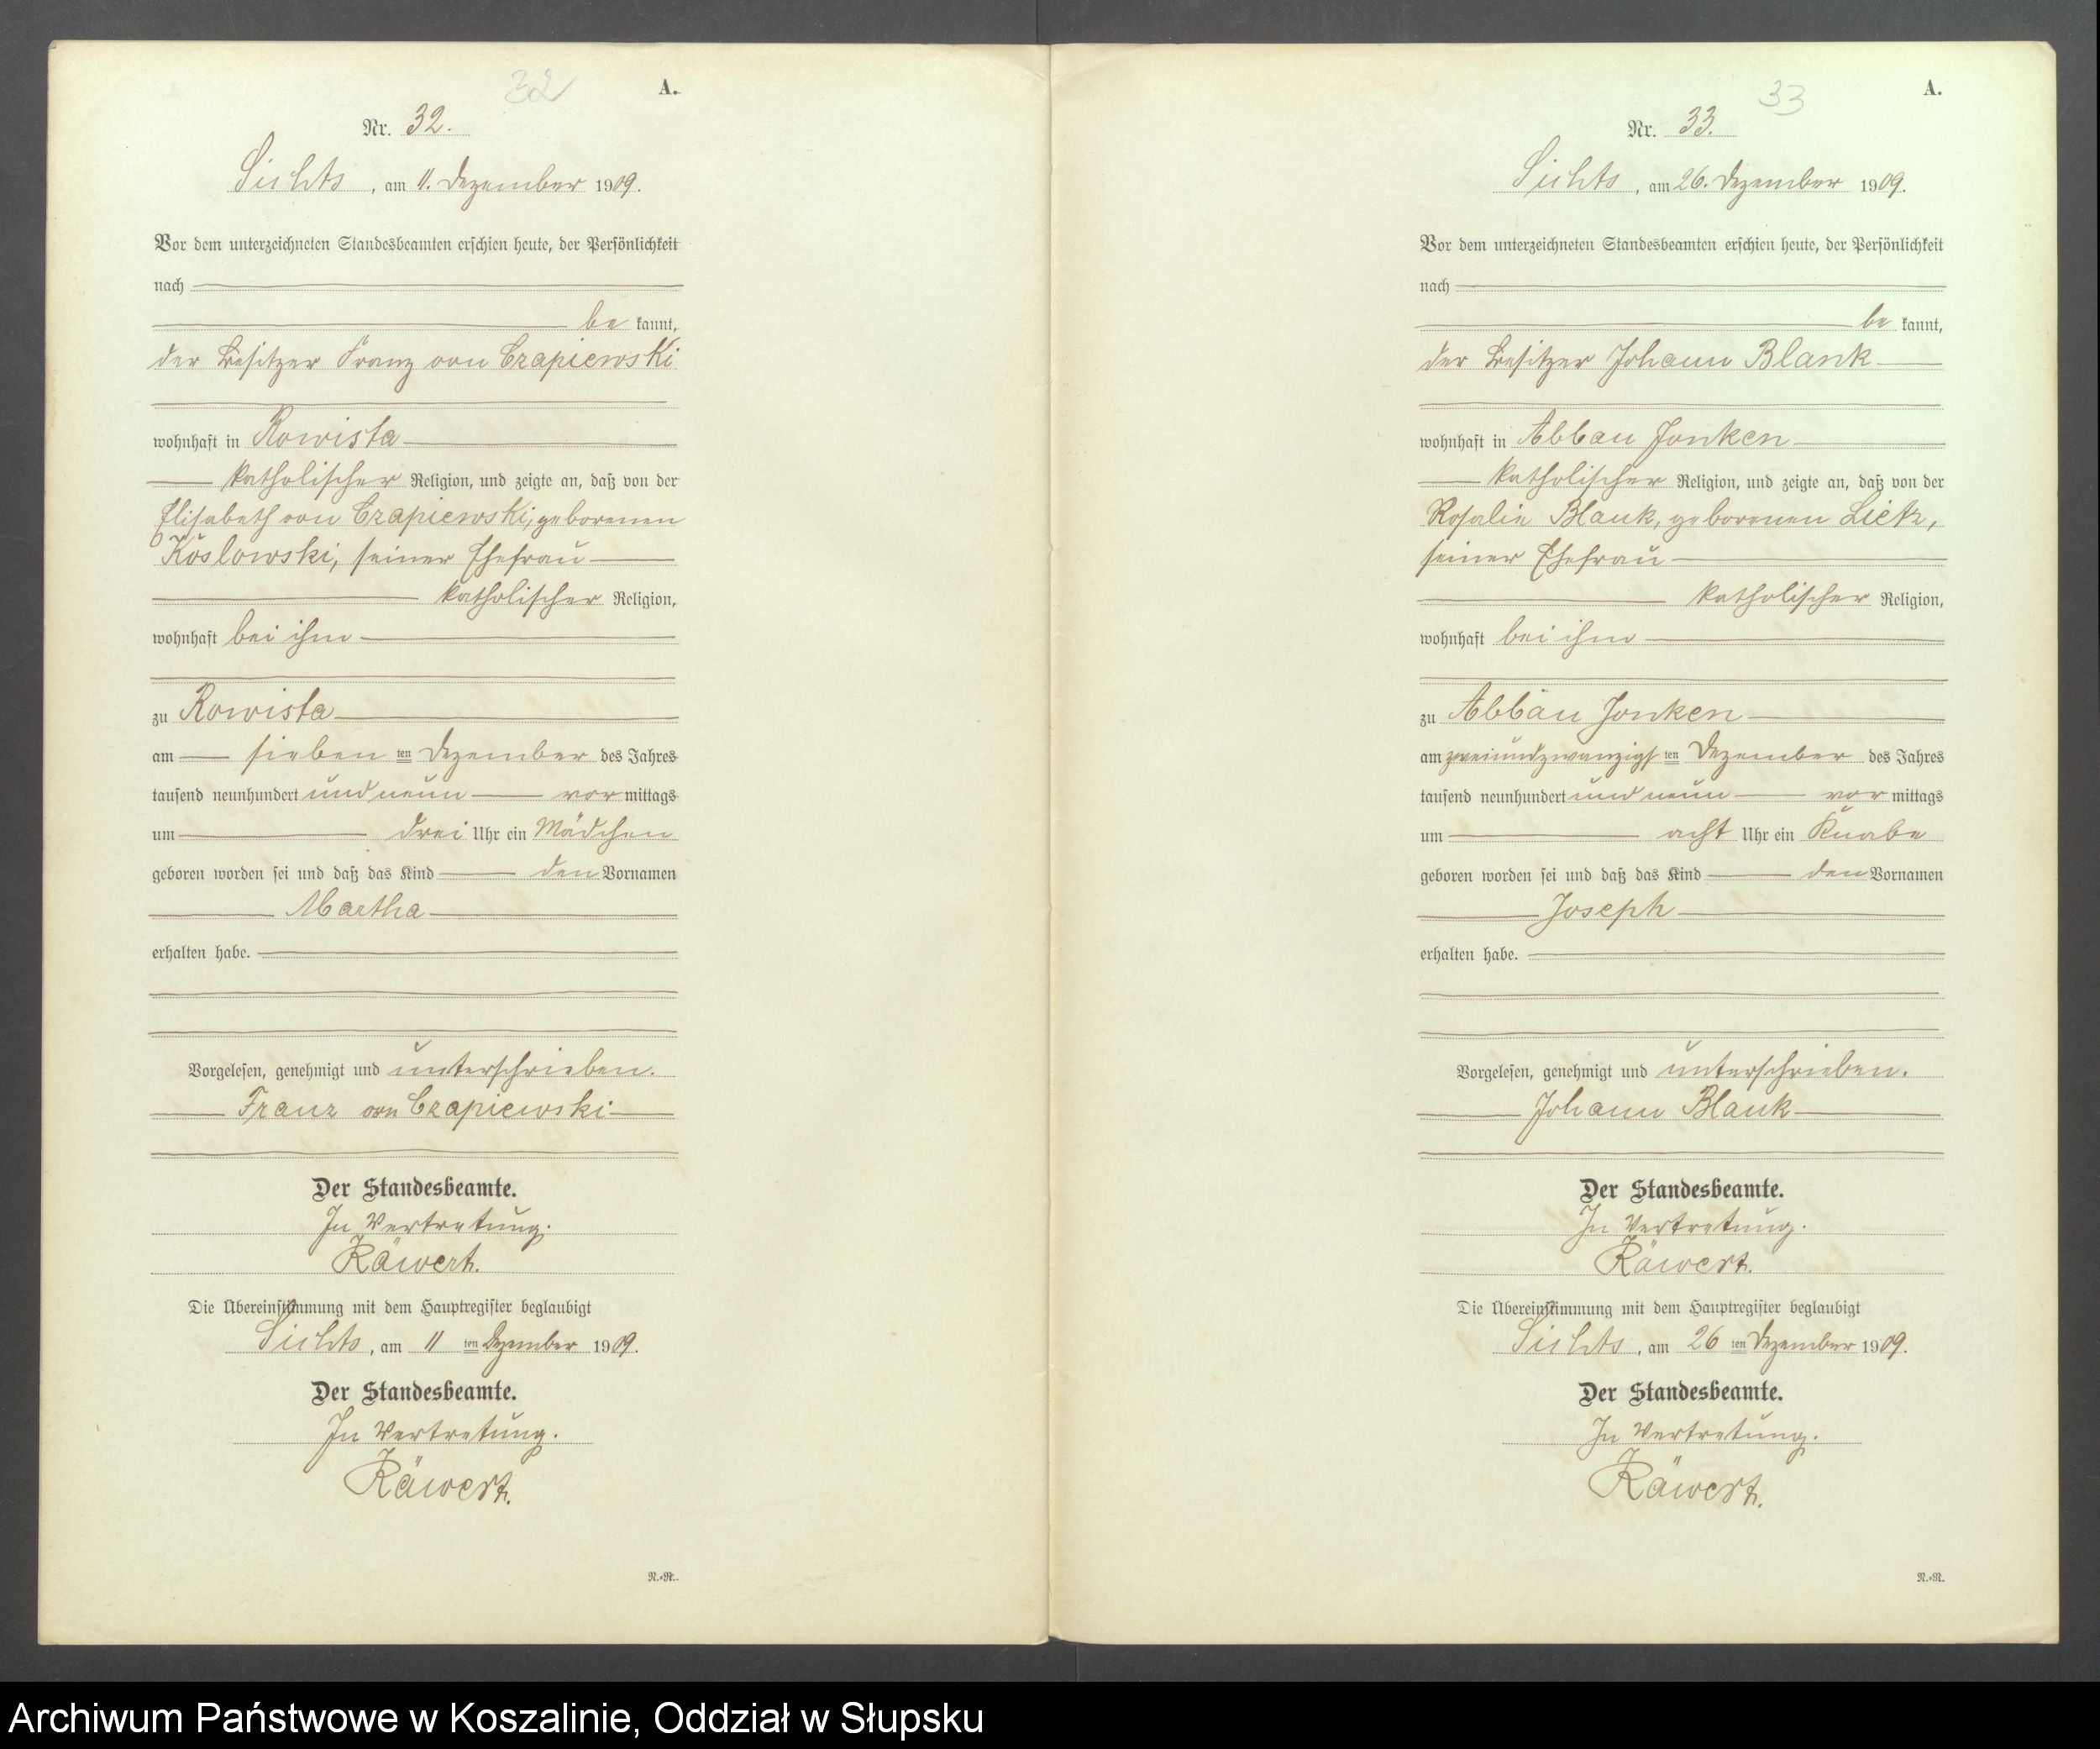 32
A.
Nr. 32.
Lichts, am 11. Dezember 1909.
Vor dem unterzeichneten Standesbeamten erschien heute, der Persönlichkeit
nach
be kannt,
der Besitzer Franz von Czapiewski
wohnhaft in Rowista
katholischer Religion, und zeigte an, daß von der
Elisabeth von Czapiewski, geborenen
Koslowski, seiner Ehefrau
katholischer Religion,
wohnhaft bei ihm
zu Rowista
am sieben ten Dezember des Jahres
tausend neunhundert und neun vor mittags
um drei Uhr ein Mädchen
geboren worden sei und daß das Kind den Vornamen
Martha
erhalten habe.
Vorgelesen, genehmigt und unterschrieben.
Franz von Czapiewski
Der Standesbeamte.
In Vertretung.
Räwert.
Die Übereinstimmung mit dem Hauptregister beglaubigt
Lichts, am 11 ten Dezember 1909.
Der Standesbeamte.
In Vertretung.
Räwert.
R.=R.
33
A.
Nr. 33.
Lichts, am 26. Dezember 1909.
Vor dem unterzeichneten Standesbeamten erschien heute, der Persönlichkeit
nach
be kannt,
der Besitzer Johann Blank
wohnhaft in Abbau Jonken
katholischer Religion, und zeigte an, daß von der
Rosalie Blank, geborenen Lietz,
seiner Ehefrau
katholischer Religion,
wohnhaft bei ihm
zu Abbau Jonken
am zweiundzwanzigs ten Dezember des Jahres
tausend neunhundert und neun vor mittags
um acht Uhr ein Knabe
geboren worden sei und daß das Kind den Vornamen
Joseph
erhalten habe.
Vorgelesen, genehmigt und unterschrieben.
Johann Blank
Der Standesbeamte.
In Vertretung.
Räwert.
Die Übereinstimmung mit dem Hauptregister beglaubigt
Lichts, am 26 ten Dezember 1909.
Der Standesbeamte.
In Vertretung.
Räwert.
R.=R.
Archiwum Państwowe w Koszalinie, Oddział w Słupsku